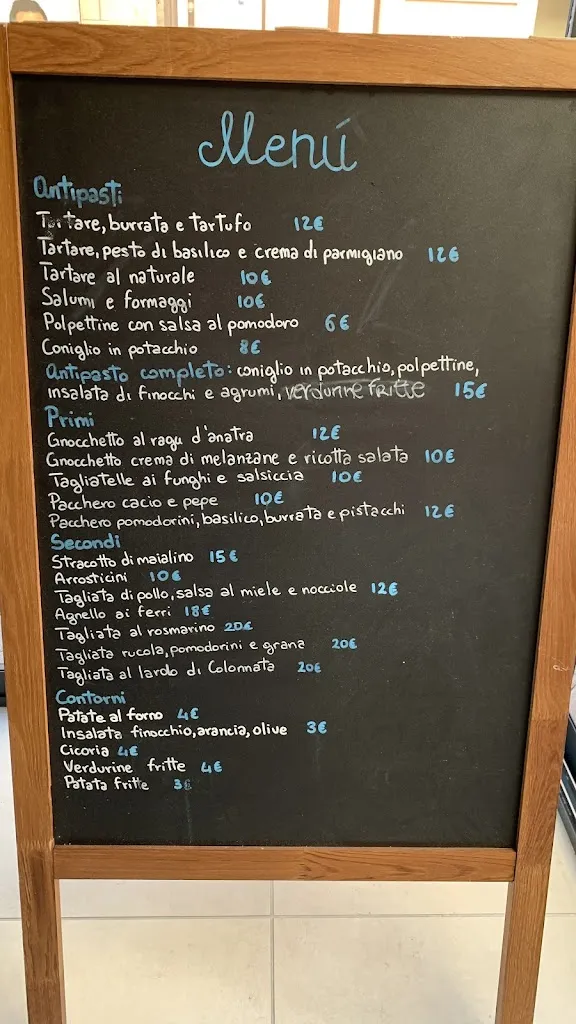 Menú
Antipasti
Tartare, burrata e tartufo 12€
Tartare, pesto di basilico e crema di parmigiano 12€
Tartare al naturale 10€
Salumi e formaggi 10€
Polpettine con salsa al pomodoro 6€
Coniglio in potacchio 8€
Antipasto completo: coniglio in potacchio, polpettine,
insalata di finocchi e agrumi, verdurine fritte 15€
Primi
Gnocchetto al ragu d'anatra 12€
Gnocchetto crema di melanzane e ricotta salata 10€
Tagliatelle ai funghi e salsiccia 10€
Pacchero cacio e pepe 10€
Pacchero pomodorini, basilico, burrata e pistacchi 12€
Secondi
Stracotto di maialino 15€
Arrosticini 10€
Tagliata di pollo, salsa al miele e nocciole 12€
Agnello ai ferri 18€
Tagliata al rosmarino 20€
Tagliata rucola, pomodorini e grana 20€
Tagliata al lardo di Colonnata 20€
Contorni
Patate al forno 4€
Insalata finocchio, arancia, olive 3€
Cicoria 4€
Verdurine fritte 4€
Patata fritte 3€